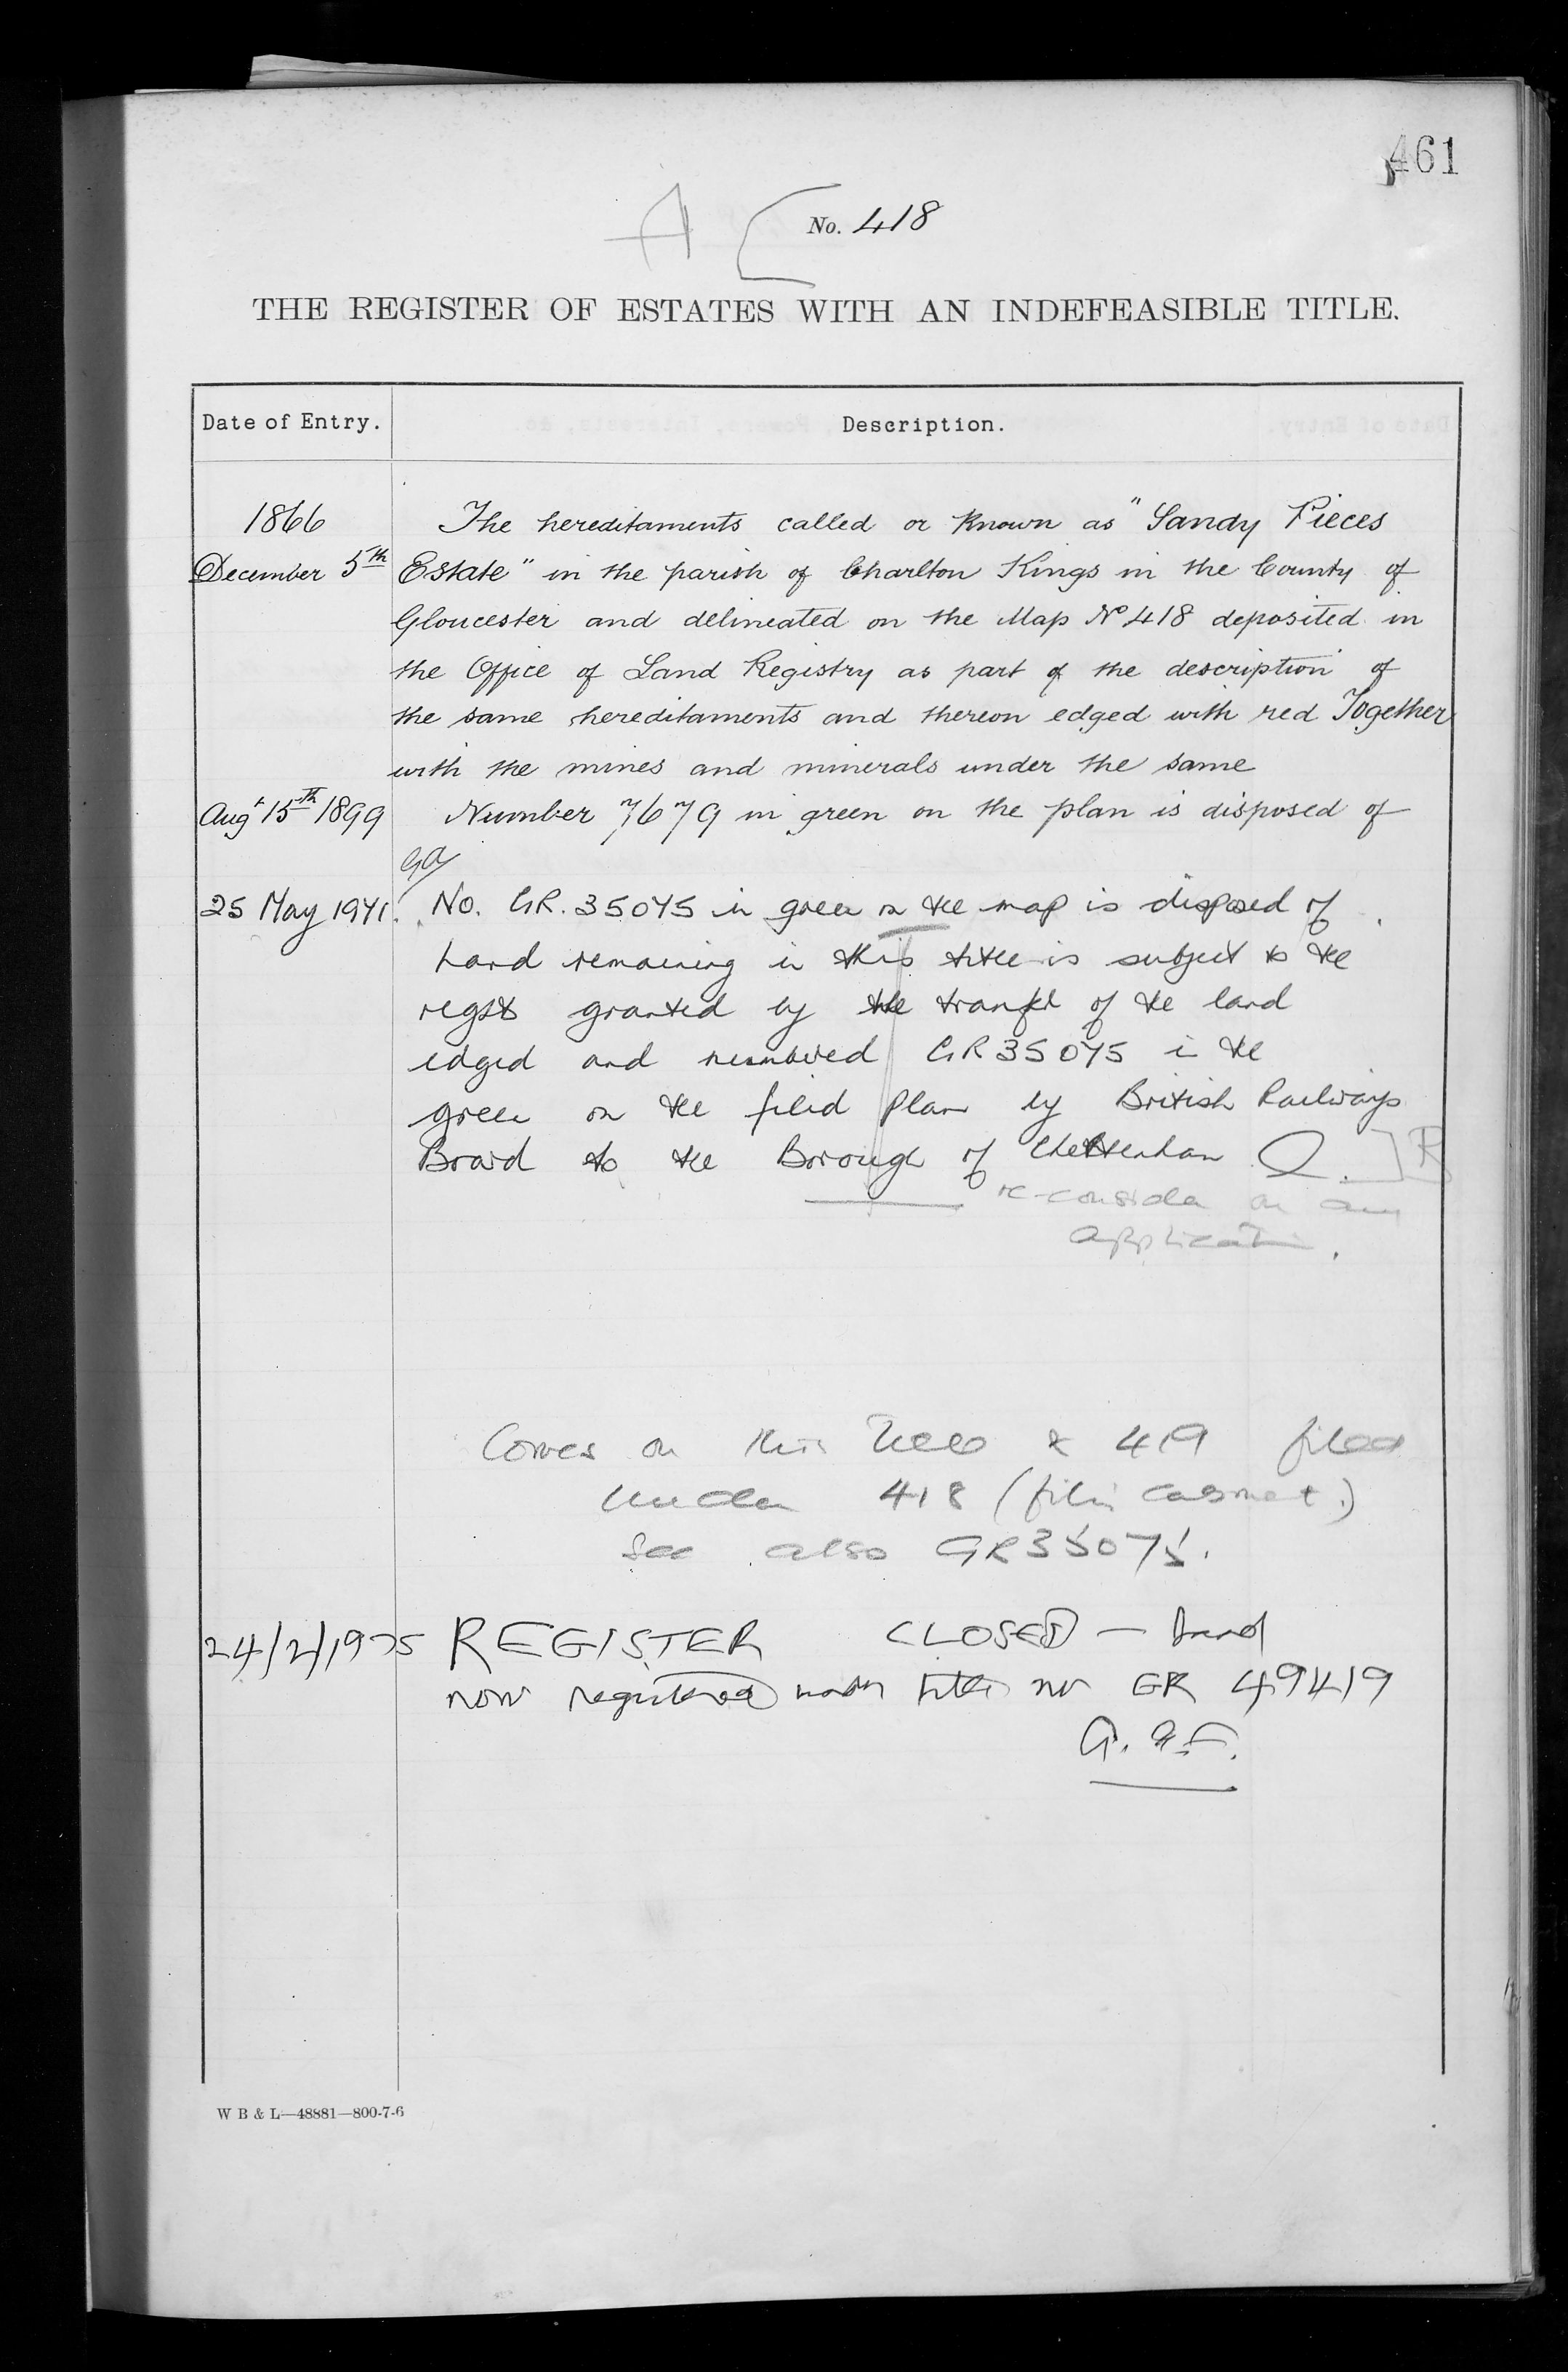 461
No. 418
THE REGISTER OF ESTATES WITH AN INDEFEASIBLE TITLE.
Date of Entry.
Description.
1866
December 5th
The hereditaments called or known as "Sandy Pieces
Estate" in the parish of Charlton Kings in the County of
Gloucester and delineated on the Map No 418 deposited in
the Office of Land Registry as part of the description of
the same hereditaments and thereon edged with red Together
with the mines and minerals under the same
Augt 15th 1899
Number 7679 in green on the plan is disposed of
25 May 1971.
No. GR. 35075 in green on the map is disposed of
Land remaining in this title is subject to the
rights granted by the transfer of the land
edged and numbered GR 35075 in the
green on the filed plan by British Railways
Board to the Borough of Cheltenham
R
re-consider on any
application.
Corres on this title & 419 filed
under 418 (filing cabinet.)
See also GR35075.
24/2/1975
REGISTER CLOSED — Land
now registered with title no GR 49419
W B & L—48881—800-7-6